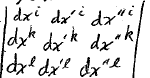 |dxⁱ dx′ⁱ dx″ⁱ|
|dxᵏ dx′ᵏ dx″ᵏ|
|dxˡ dx′ˡ dx″ˡ|